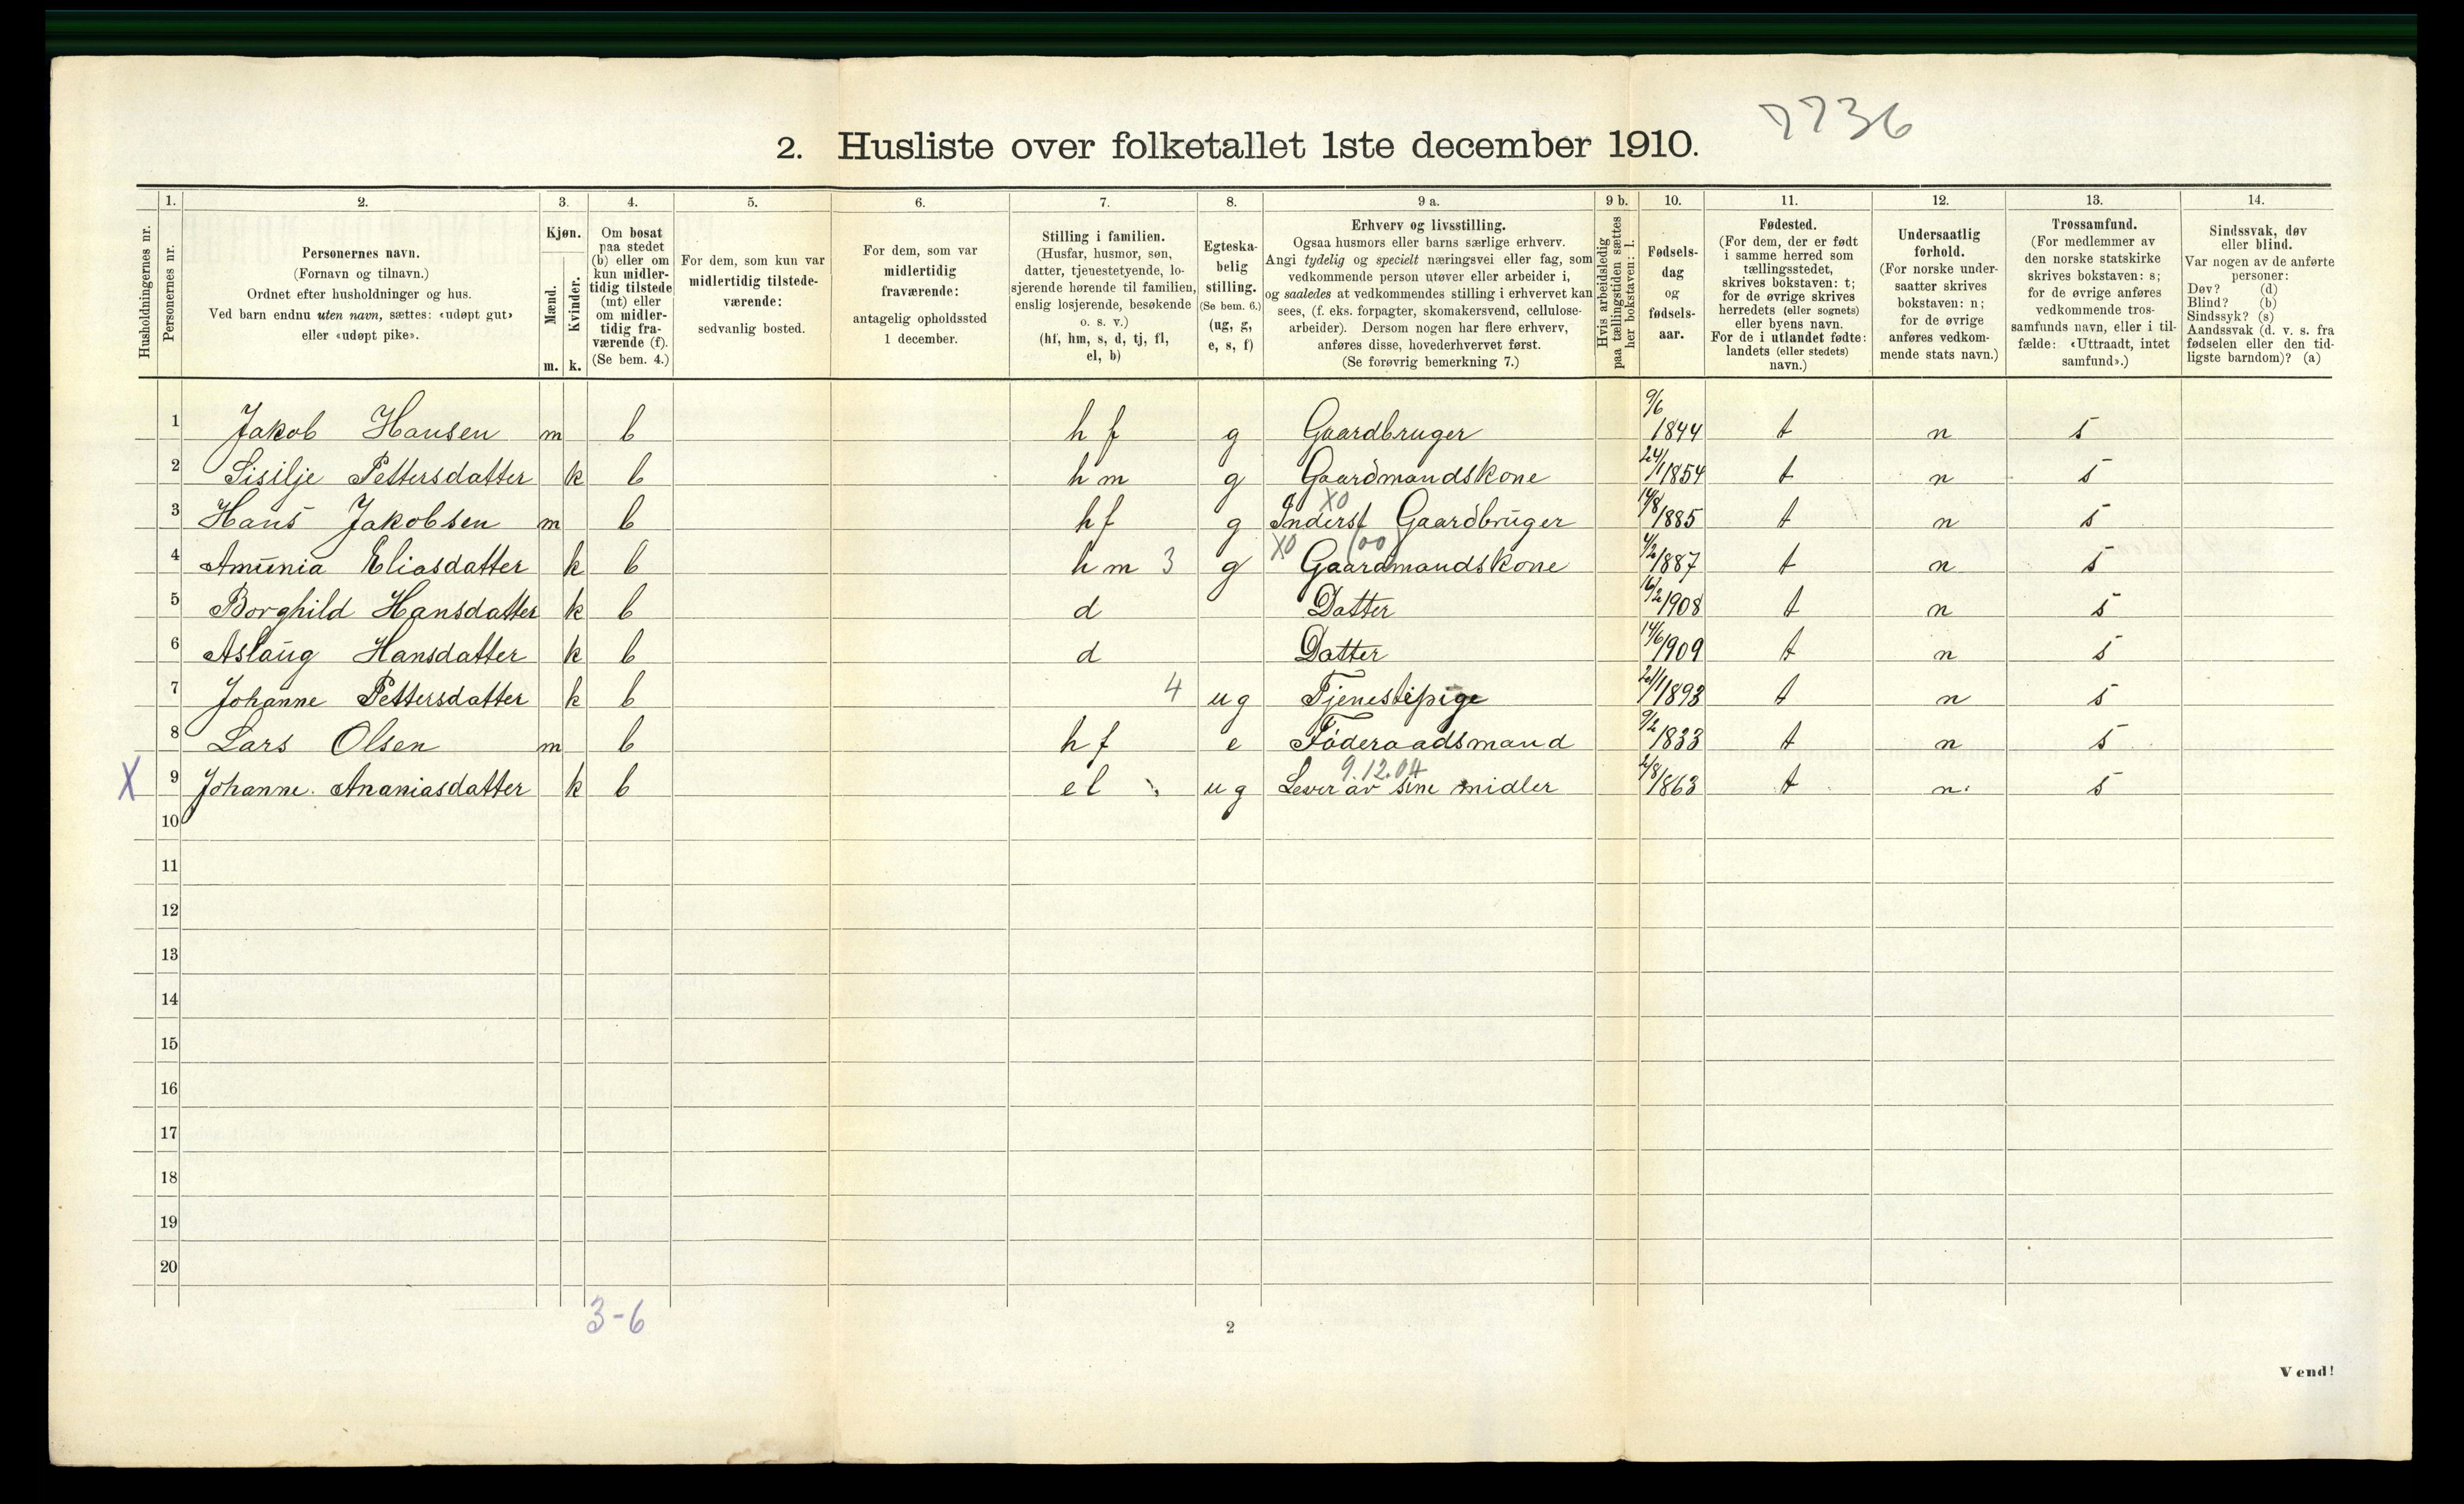 7736
2. Husliste over folketallet 1ste december 1910.
Husholdningernes nr.
1.
Personernes nr.
2.
Personernes navn.
(Fornavn og tilnavn.)
Ordnet efter husholdninger og hus.
Ved barn endnu uten navn, sættes: «udøpt gut»
eller «udøpt pike».
3.
Kjøn.
Mænd.
Kvinder.
m. k.
4.
Om bosat
paa stedet
(b) eller om
kun midler-
tidig tilstede
(mt) eller
om midler-
tidig fra-
værende (f).
(Se bem. 4.)
5.
For dem, som kun var
midlertidig tilstede-
værende:
sedvanlig bosted.
6.
For dem, som var
midlertidig
fraværende:
antagelig opholdssted
1 december.
7.
Stilling i familien.
(Husfar, husmor, søn,
datter, tjenestetyende, lo-
sjerende hørende til familien,
enslig losjerende, besøkende
o. s. v.)
(hf, hm, s, d, tj, fl,
el, b)
8.
Egteska-
belig
stilling.
(Se bem. 6.)
(ug, g,
e, s, f)
9 a.
Erhverv og livsstilling.
Ogsaa husmors eller barns særlige erhverv.
Angi tydelig og specielt næringsvei eller fag, som
vedkommende person utøver eller arbeider i,
og saaledes at vedkommendes stilling i erhvervet kan
sees, (f. eks. forpagter, skomakersvend, cellulose-
arbeider). Dersom nogen har flere erhverv,
anføres disse, hovederhvervet først.
(Se forøvrig bemerkning 7.)
9 b.
Hvis arbeidsledig
paa tællingstiden sættes
her bokstaven: l.
10.
Fødsels-
dag
og
fødsels-
aar.
11.
Fødested.
(For dem, der er født
i samme herred som
tællingsstedet,
skrives bokstaven: t;
for de øvrige skrives
herredets (eller sognets)
eller byens navn.
For de i utlandet fødte:
landets (eller stedets)
navn.)
12.
Undersaatlig
forhold.
(For norske under-
saatter skrives
bokstaven: n;
for de øvrige
anføres vedkom-
mende stats navn.)
13.
Trossamfund.
(For medlemmer av
den norske statskirke
skrives bokstaven: s;
for de øvrige anføres
vedkommende tros-
samfunds navn, eller i til-
fælde: «Uttraadt, intet
samfund».)
14.
Sindssvak, døv
eller blind.
Var nogen av de anførte
personer:
Døv? (d)
Blind? (b)
Sindssyk? (s)
Aandssvak (d. v. s. fra
fødselen eller den tid-
ligste barndom)? (a)
1 Jakob Hansen m b hf g Gaardbruger 9/6 1844 t n s
2 Sisilje Pettersdatter k b hm g Gaardmandskone 24/1 1854 t n s
XO
3 Hans Jakobsen m b hf g Inderst Gaardbruger 14/8 1885 t n s
XO (oo)
4 Amunia Eliasdatter k b hm 3 g Gaardmandskone 4/2 1887 t n s
5 Borghild Hansdatter k b d Datter 16/2 1908 t n s
6 Aslaug Hansdatter k b d Datter 14/6 1909 t n s
7 Johanne Pettersdatter k b 4 ug Tjenestepige 1893 t n s
8 Lars Olsen m b hf e Föderaadsmand 9/2 1833 t n s
9.12.04
X 9 Johanne Ananiasdatter k b el ug Lever av sine midler 2/8 1863 t n s
10
11
12
13
14
15
16
17
18
19
20
3-6
2
Vend!